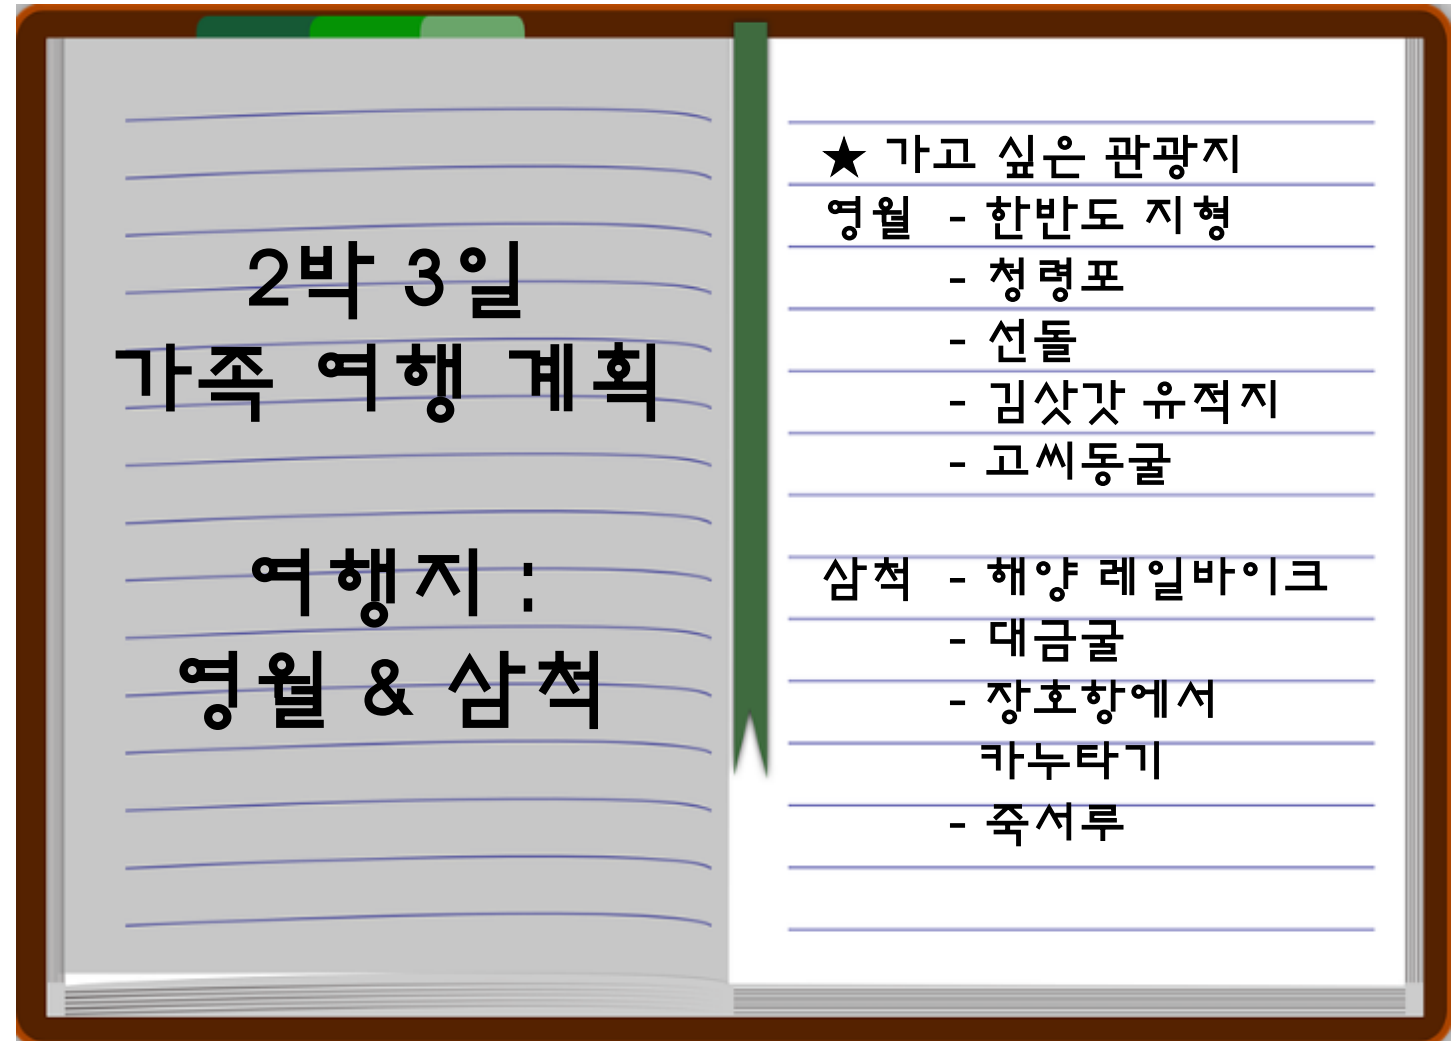 2박 3일
가족 여행 계획
여행지 :
영월 & 삼척
★ 가고 싶은 관광지
영월 - 한반도 지형
- 청령포
- 선돌
- 김삿갓 유적지
- 고씨동굴
삼척 - 해양 레일바이크
- 대금굴
- 장호항에서
카누타기
- 죽서루